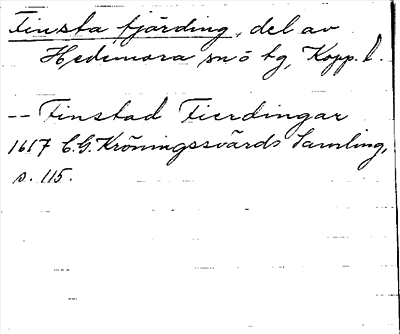 Finsta fjärding, del av
Hedemora sn o tg, Kopp. l.
-- Finstad Fierdingar
1617 C.G. Kröningssvärds Samling,
s. 115.